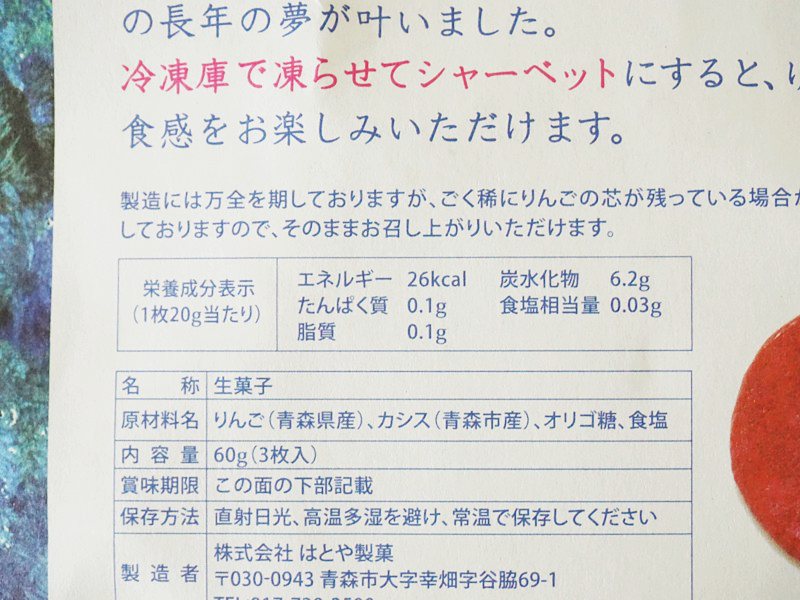 の長年の夢が叶いました。
冷凍庫で凍らせてシャーベットにすると、
食感をお楽しみいただけます。
製造には万全を期しておりますが、ごく稀にりんごの芯が残っている場合が
しておりますので、そのままお召し上がりいただけます。
栄養成分表示
(1枚20g当たり)
エネルギー 26kcal 炭水化物 6.2g
たんぱく質 0.1g 食塩相当量 0.03g
脂質 0.1g
名称 生菓子
原材料名 りんご(青森県産)、カシス(青森市産)、オリゴ糖、食塩
内容量 60g(3枚入)
賞味期限 この面の下部記載
保存方法 直射日光、高温多湿を避け、常温で保存してください
製造者 株式会社 はとや製菓
〒030-0943 青森市大字幸畑字谷脇69-1